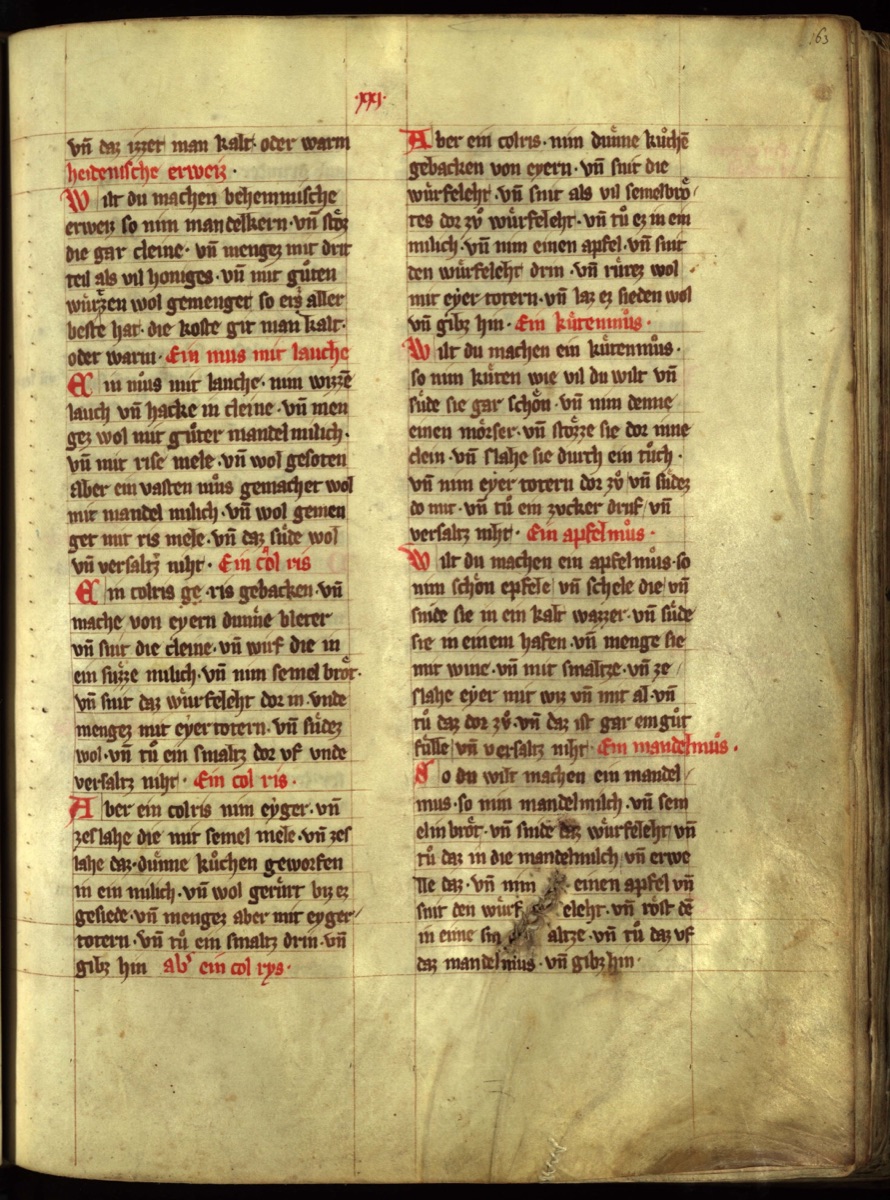 163
·xxj·
vñ daz izzet man kalt· oder warm
heidenische erweiz ·
Wilt du machen behemmische
erweiz so nim mandelkern · vñ stoͤz
die gar cleine · vñ mengez mit drit
teil als vil honiges · vñ mit guͦten
wuͤrtzen wol gemenget so ers aller
beste hat · die koste git man kalt·
oder warm · Ein mus mit lauche
Ein muͦs mit lauche· nim wizzē
lauch vñ hacke in cleine · vñ men
gez wol mit guͦter mandel milich·
vñ mit rise mele · vñ wol gesoten
Aber ein vasten muͦs gemachet wol
mit mandel milich · vñ wol gemen
get mit ris mele · vñ daz suͤde wol
vñ versaltz niht · Ein col ris
Ein colris ge ·ris gebacken · vñ
mache von eyern dunne bleter
vñ snit die cleine · vñ wurf die in
ein suͤzze milich · vñ nim semel broͤt·
vñ snit daz wuͤrfeleht dor in · vnde
mengez mit eyer totern · vñ suͤdez
wol · vñ tuͦ ein smaltz dor vf vnde
versaltz niht · Ein col ris ·
Aber ein colris nim eyger · vñ
zeslahe die mit semel mele · vñ zes
lahe daz · duͤnne kuͦchen geworfen
in ein milich · vñ wol geruͤrt biz ez
gesiede · vñ mengez aber mit eyger
totern · vñ tuͦ ein smaltz drin · vñ
gibz hin ab' ein col rys·
Aber ein colris · nim duͤnne kuͦchē
gebacken von eyern · vñ snit die
wuͤrfeleht · vñ snit als vil semelbro͂
tes dor zuͦ wuͤrfeleht · vñ tuͦ ez in ein
milich · vñ nim einen apfel · vñ snit
den wuͤrfeleht drin · vñ ruͤrez wol
mit eyer totern · vñ laz ez sieden wol
vñ gibz hin · Ein kuͤtenmuͦs ·
Wilt du machen ein kuͤtenmuͦs ·
so nim kuͤten wie vil du wilt vñ
suͤde sie gar schoͤn · vñ nim denne
einen moͤrser · vñ stoͤzze sie dor inne
clein · vñ slahe sie durch ein tuͦch ·
vñ nim eyer totern dor zuͦ vñ suͤdez
do mit · vñ tuͦ ein zucker druf vñ
versaltz niht · Ein apfelmuͦs ·
Wilt du machen ein apfelmuͦs · so
nim schoͤn epfele vñ schele die vñ
snide sie in ein kalt wazzer · vñ suͤde
sie in einem hafen · vñ menge sie
mit wine · vñ mit smaltze · vñ ze
slahe eyer mit wiz vñ mit al · vñ
tuͦ daz dor zuͦ · vñ daz ist gar ein guͦt
fuͤlle vñ versaltz niht · Ein mandelmuͦs ·
So du wilt machen ein mandel
mus · so nim mandelmilch · vñ sem
elin broͤt · vñ sinde daz wuͤrfeleht vñ
tuͦ daz in die mandelmilch vñ erwe
lle daz · vñ nim einen apfel vñ
snit den wuͤrfeleht · vñ roͤst dē
in eime smaltze · vñ tuͦ daz vf
daz mandelmus · vñ gibz hin ·